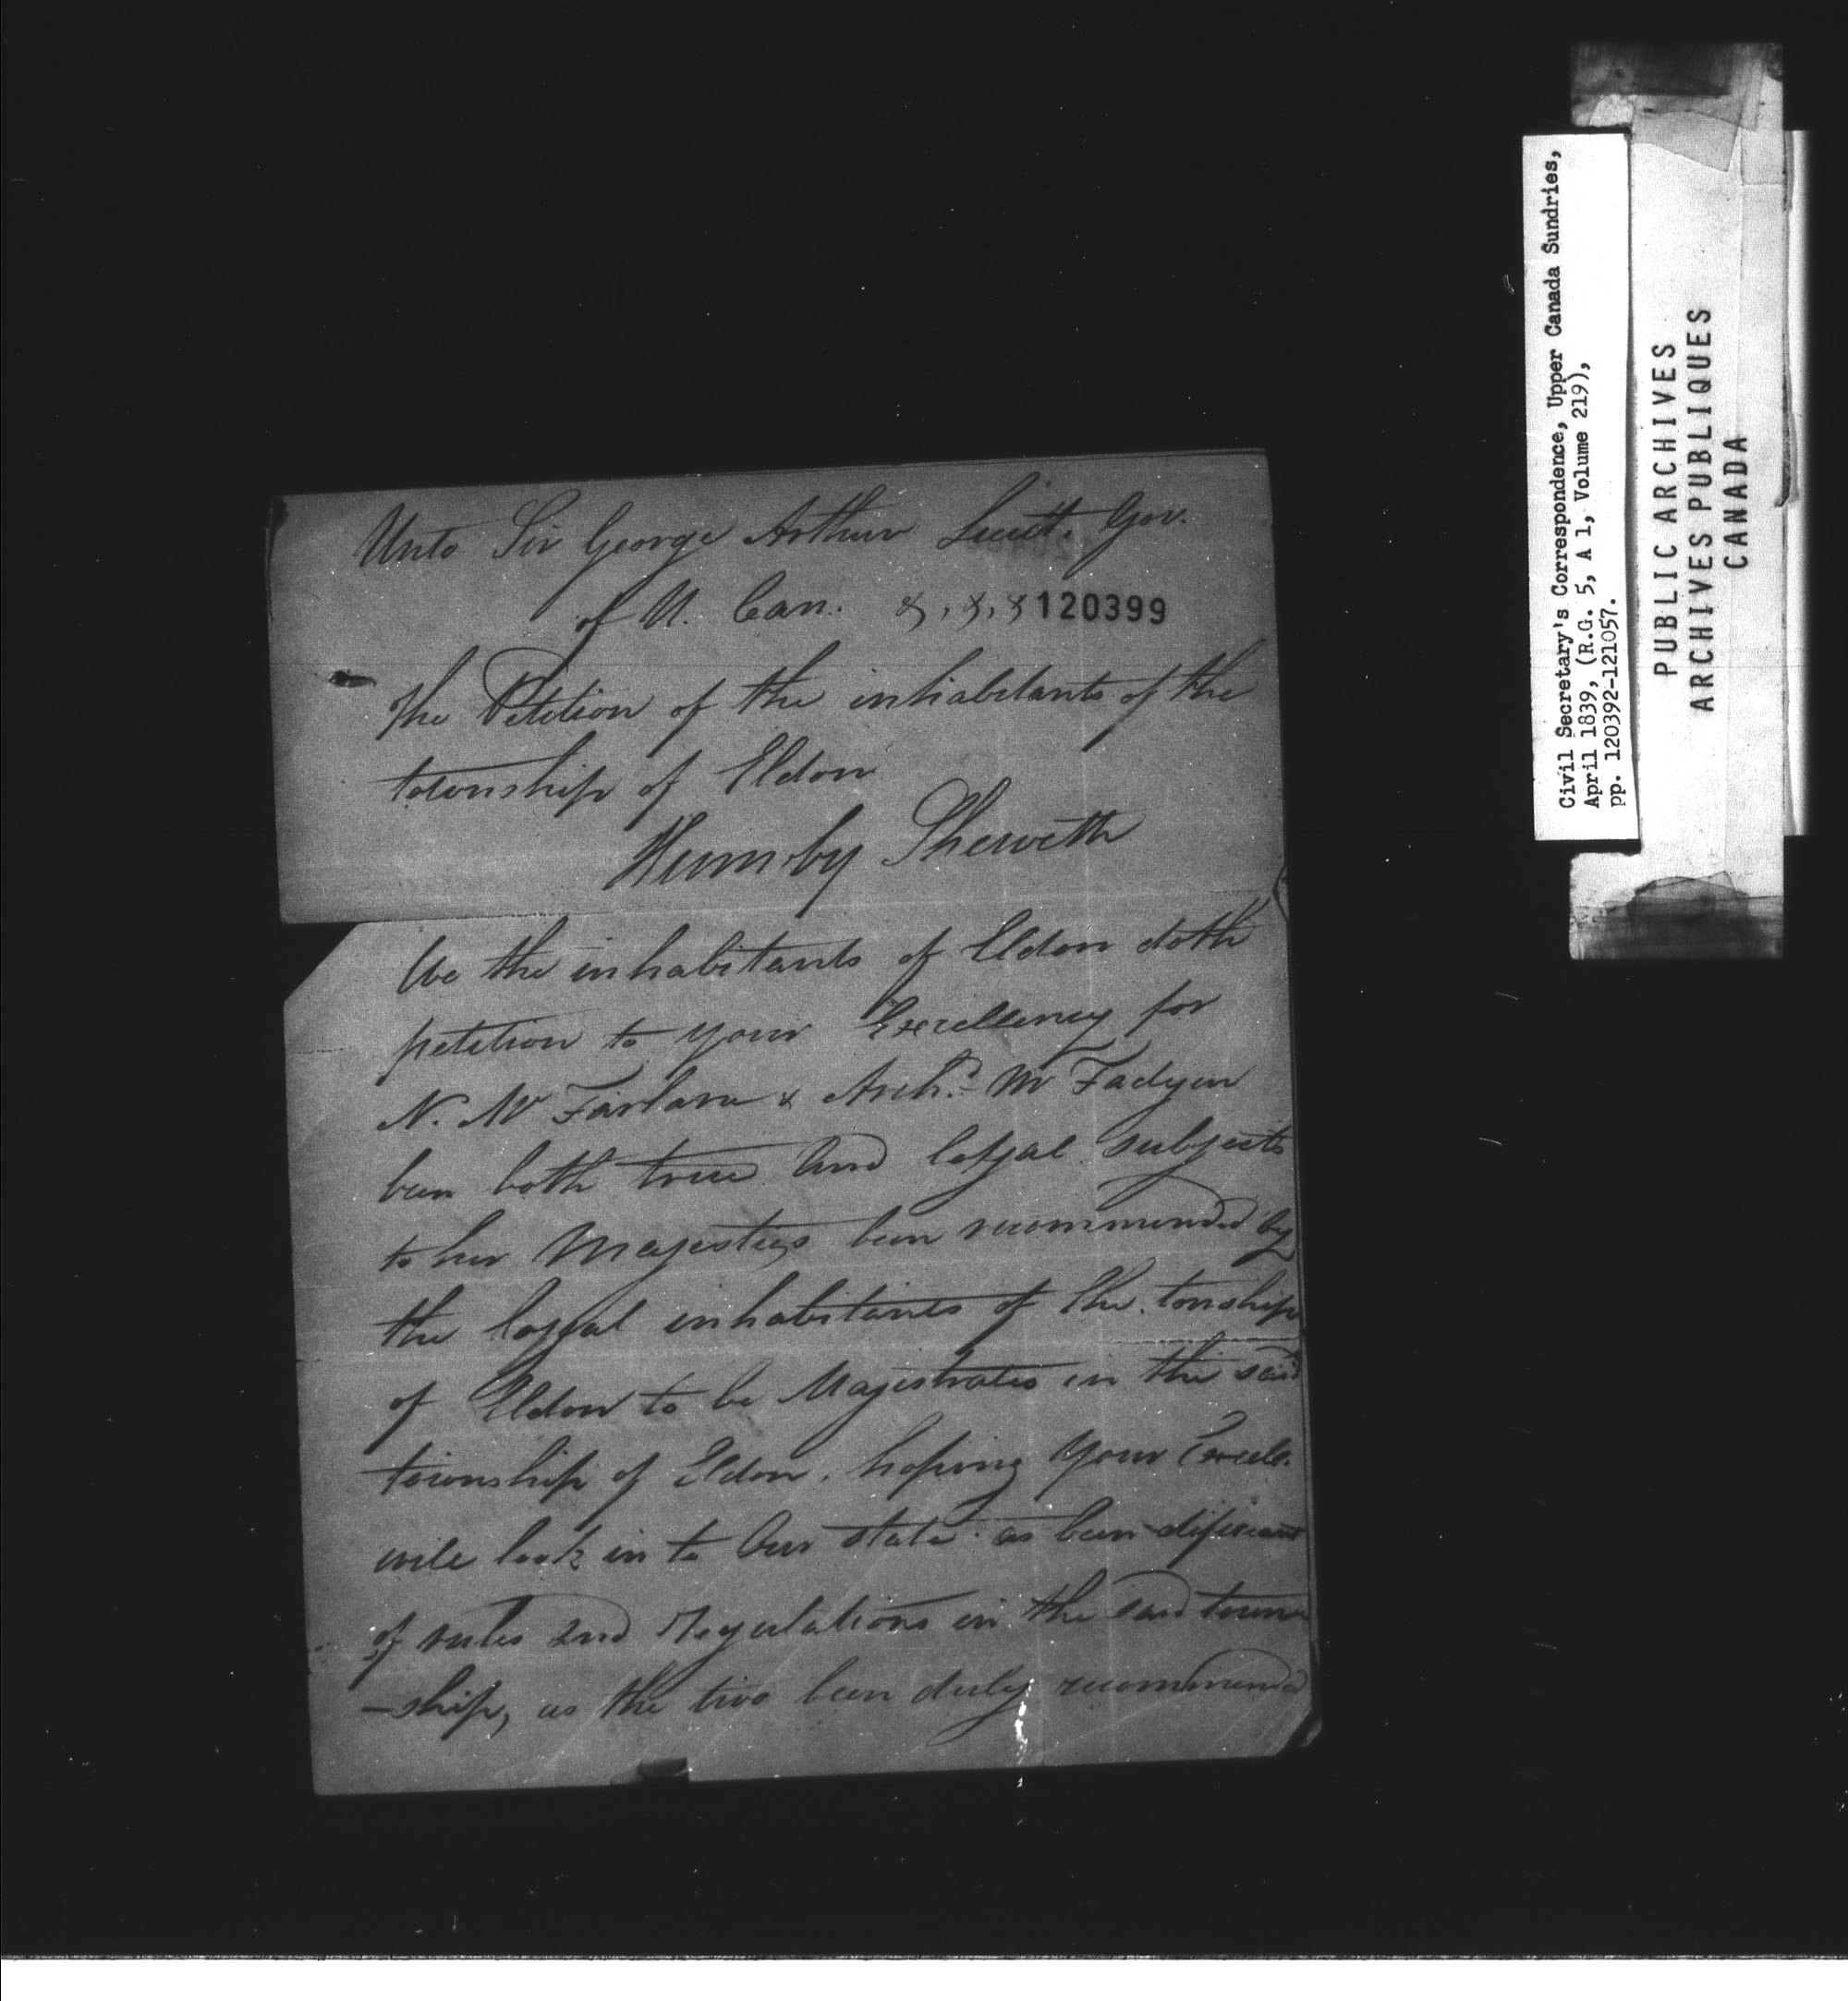 Unto Sir George Arthur Lieutt. Gov.
of U. Can. &, &, & 120399
The Petition of the inhabitants of the
township of Eldon
Humby Sheweth
We the inhabitants of Eldon doth
petition to your Excellency for
N. Mc Farlane & Archd. Mc Fadyen
been both true and loyal subjects
to her Majestys been recommended by
the loyal inhabitants of the tonship
of Eldon to be Magistrates in the said
township of Eldon, hoping your Excell.
will look in to Our state as been
of rules and Regulations in the said town
-ship, as the two been duly recommended
Civil Secretary's Correspondence, Upper Canada Sundries,
April 1839, (R.G. 5, A 1, Volume 219),
pp. 120392-121057.
PUBLIC ARCHIVES
ARCHIVES PUBLIQUES
CANADA